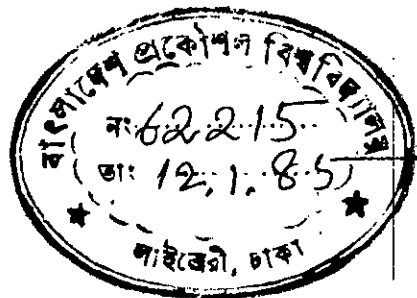 বাংলাদেশ প্রকৌশল বিশ্ববিদ্যালয়
নং 62215
তাং 12.1.85
লাইব্রেরী, ঢাকা